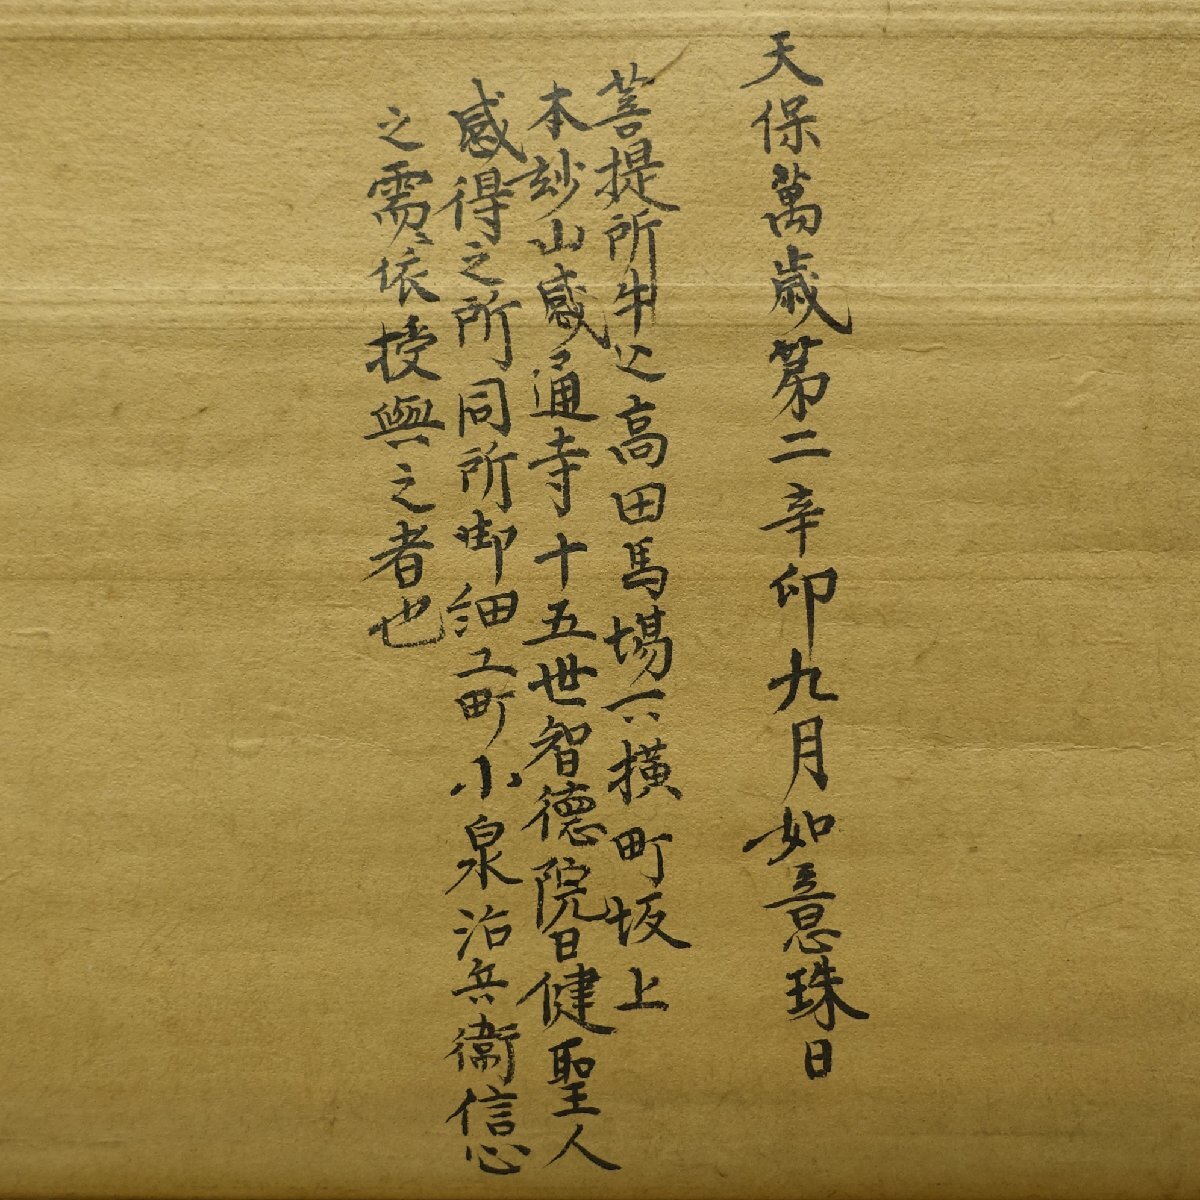 天保萬歳第二辛卯九月如意珠日
菩提所牛込高田馬場下横町坂上
本妙山感通寺十五世智徳院日健聖人
感得之所同所御細工町小泉治兵衛信心
之需依授與之者也